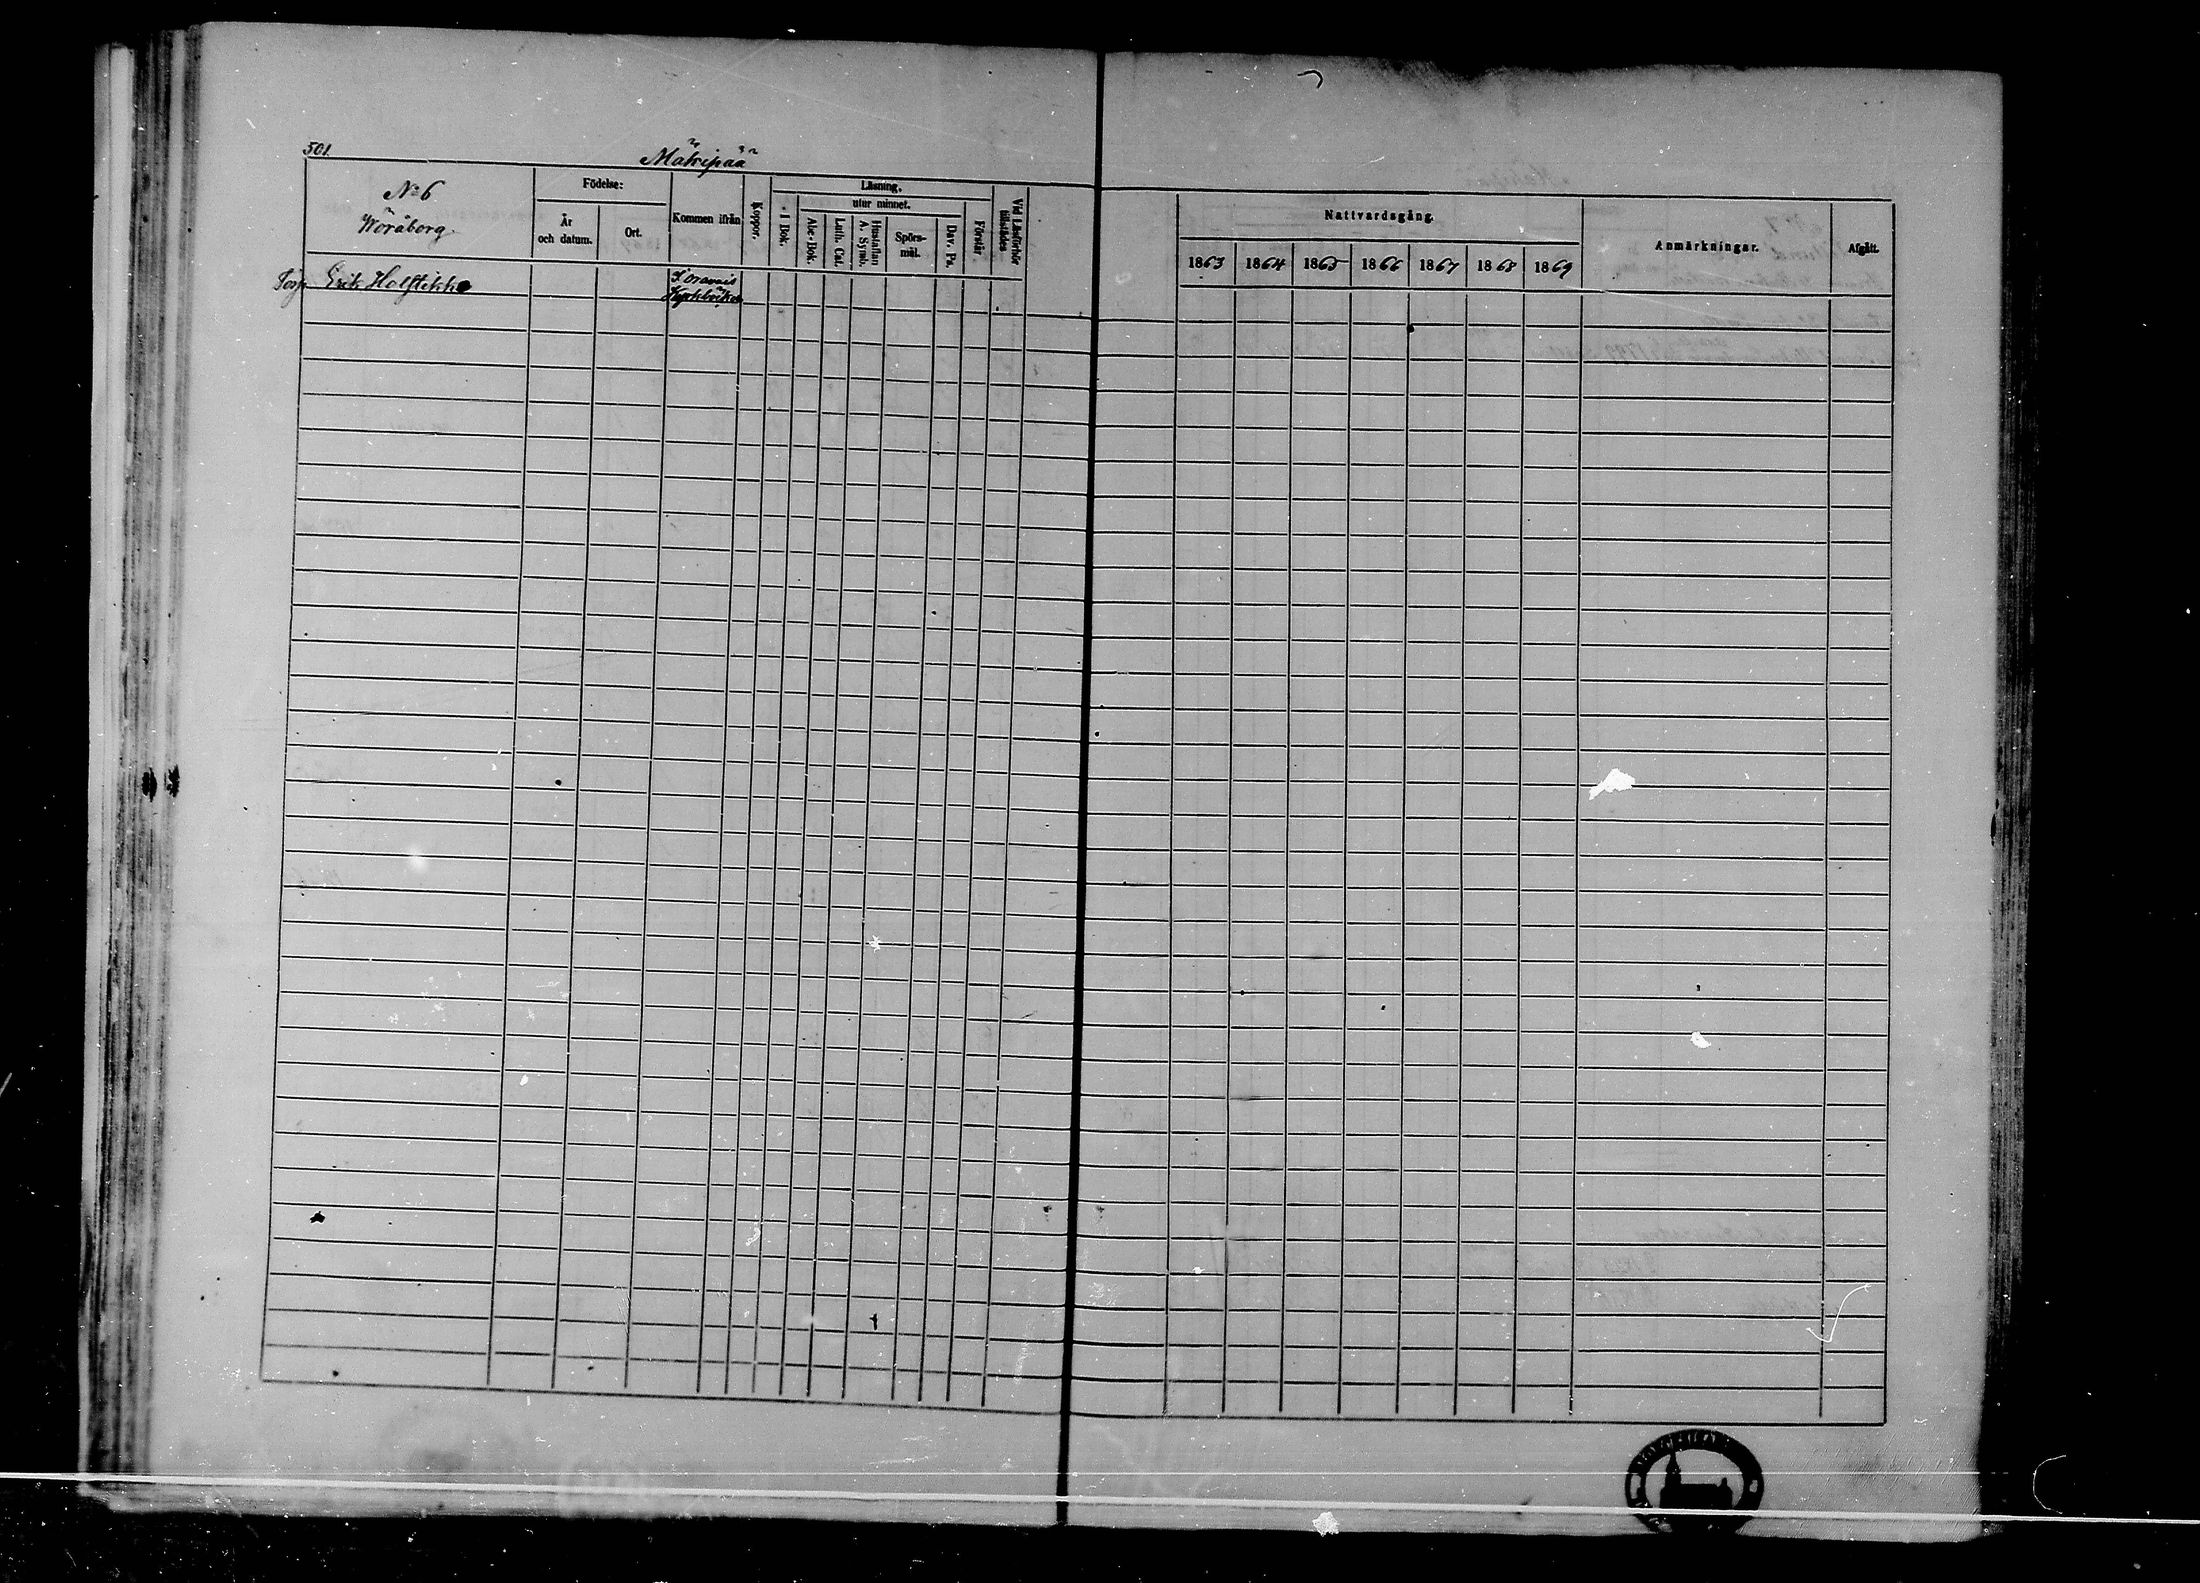 501.
Mäkipää
No 6
Wöråborg.
Födelse:
År
och datum.
Ort.
Kommen ifrån
Koppor.
Läsning.
I Bok.
utur minnet.
Abc-Bok.
Luth. Cat.
Hustaflan
A. Symb.
Spörs-
mål.
Dav. Ps.
Förstår.
Vid Läsförhör
tillstädes
Nattvardsgång.
1863 1864 1865 1866 1867 1868 1869
Anmärkningar.
Afgått.
Torp. Erik Holstikko